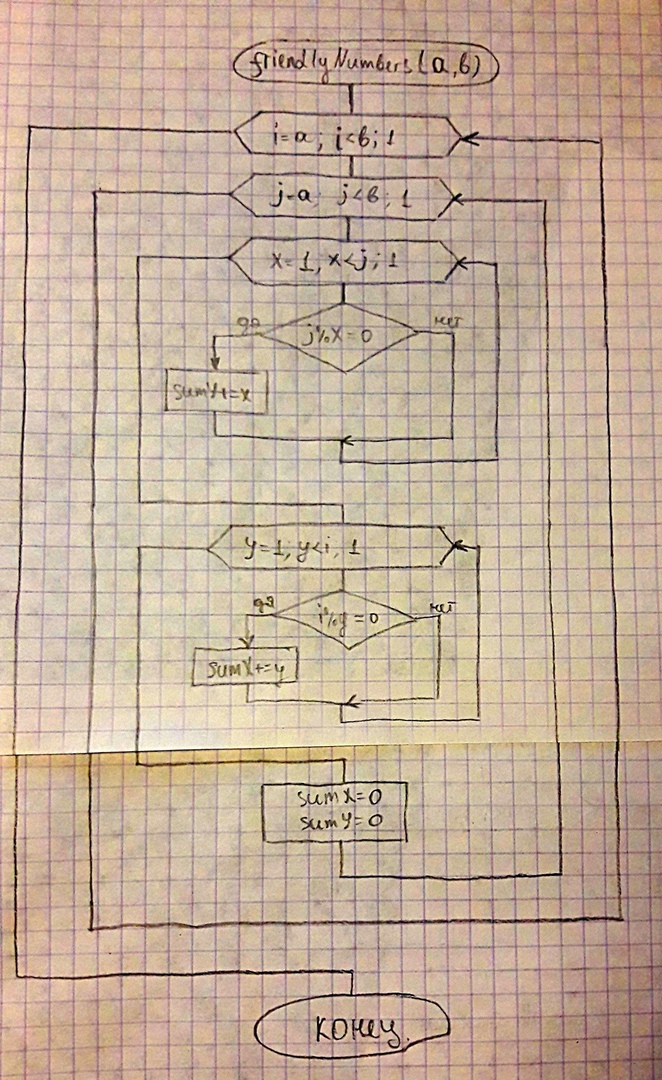 friendlyNumbers(a,b)
i=a; i<b; 1
j=a; j<b; 1
x=1, x<j; 1
да
j%x=0
нет
sumY+=x
y=1, y<i, 1
да
i%y=0
нет
sumX+=y
sumX=0
sumY=0
конец